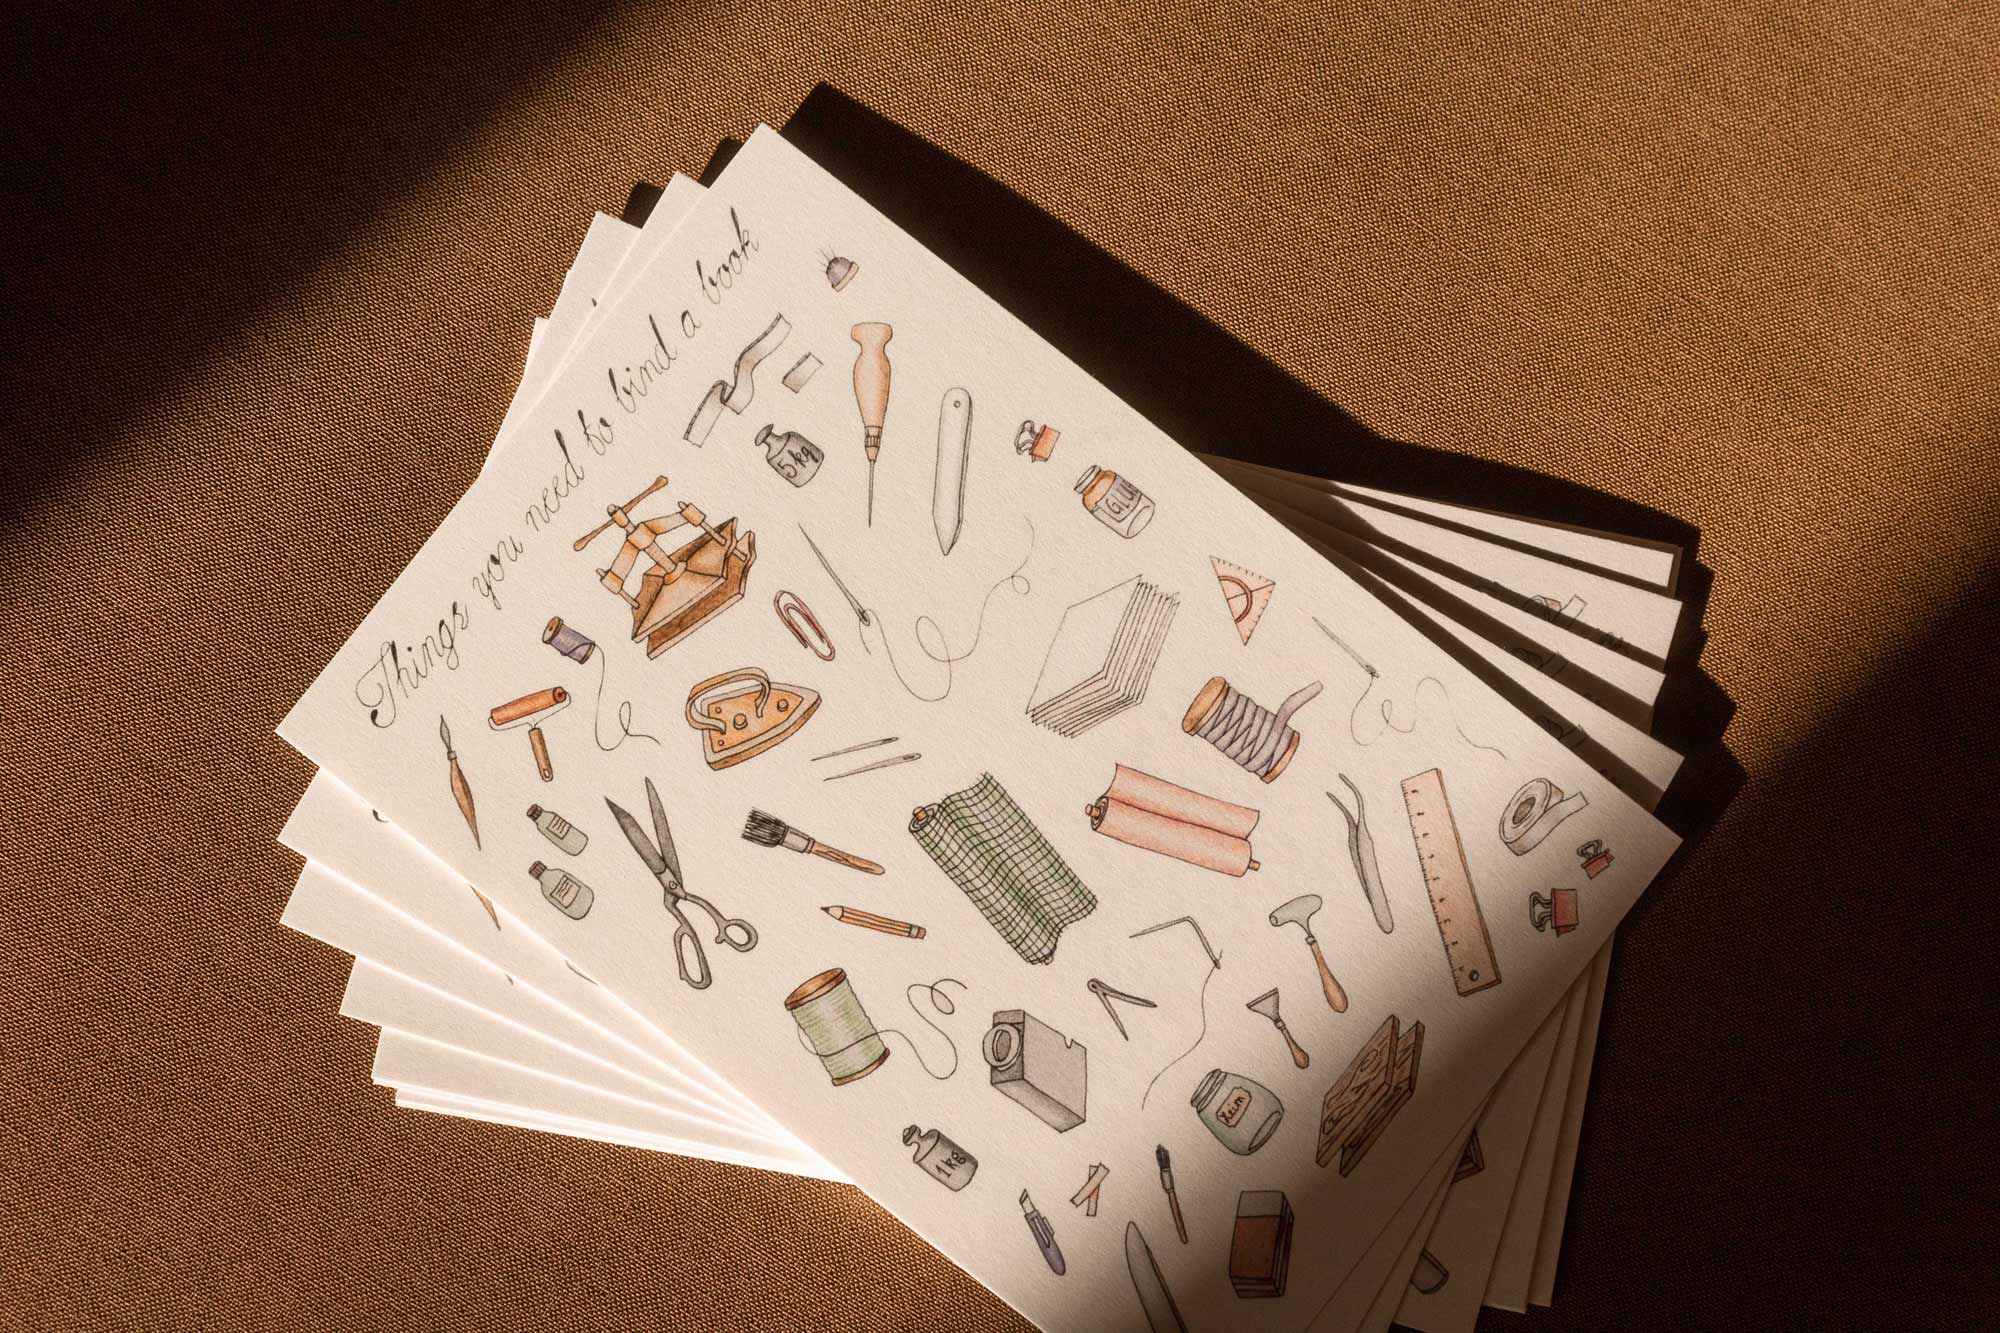 Things you need to bind a book
5 kg
GLUE
Leim
1 kg